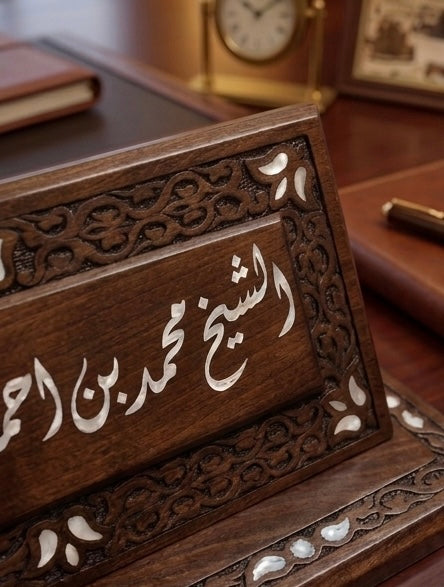 الشيخ محمد بن احمد